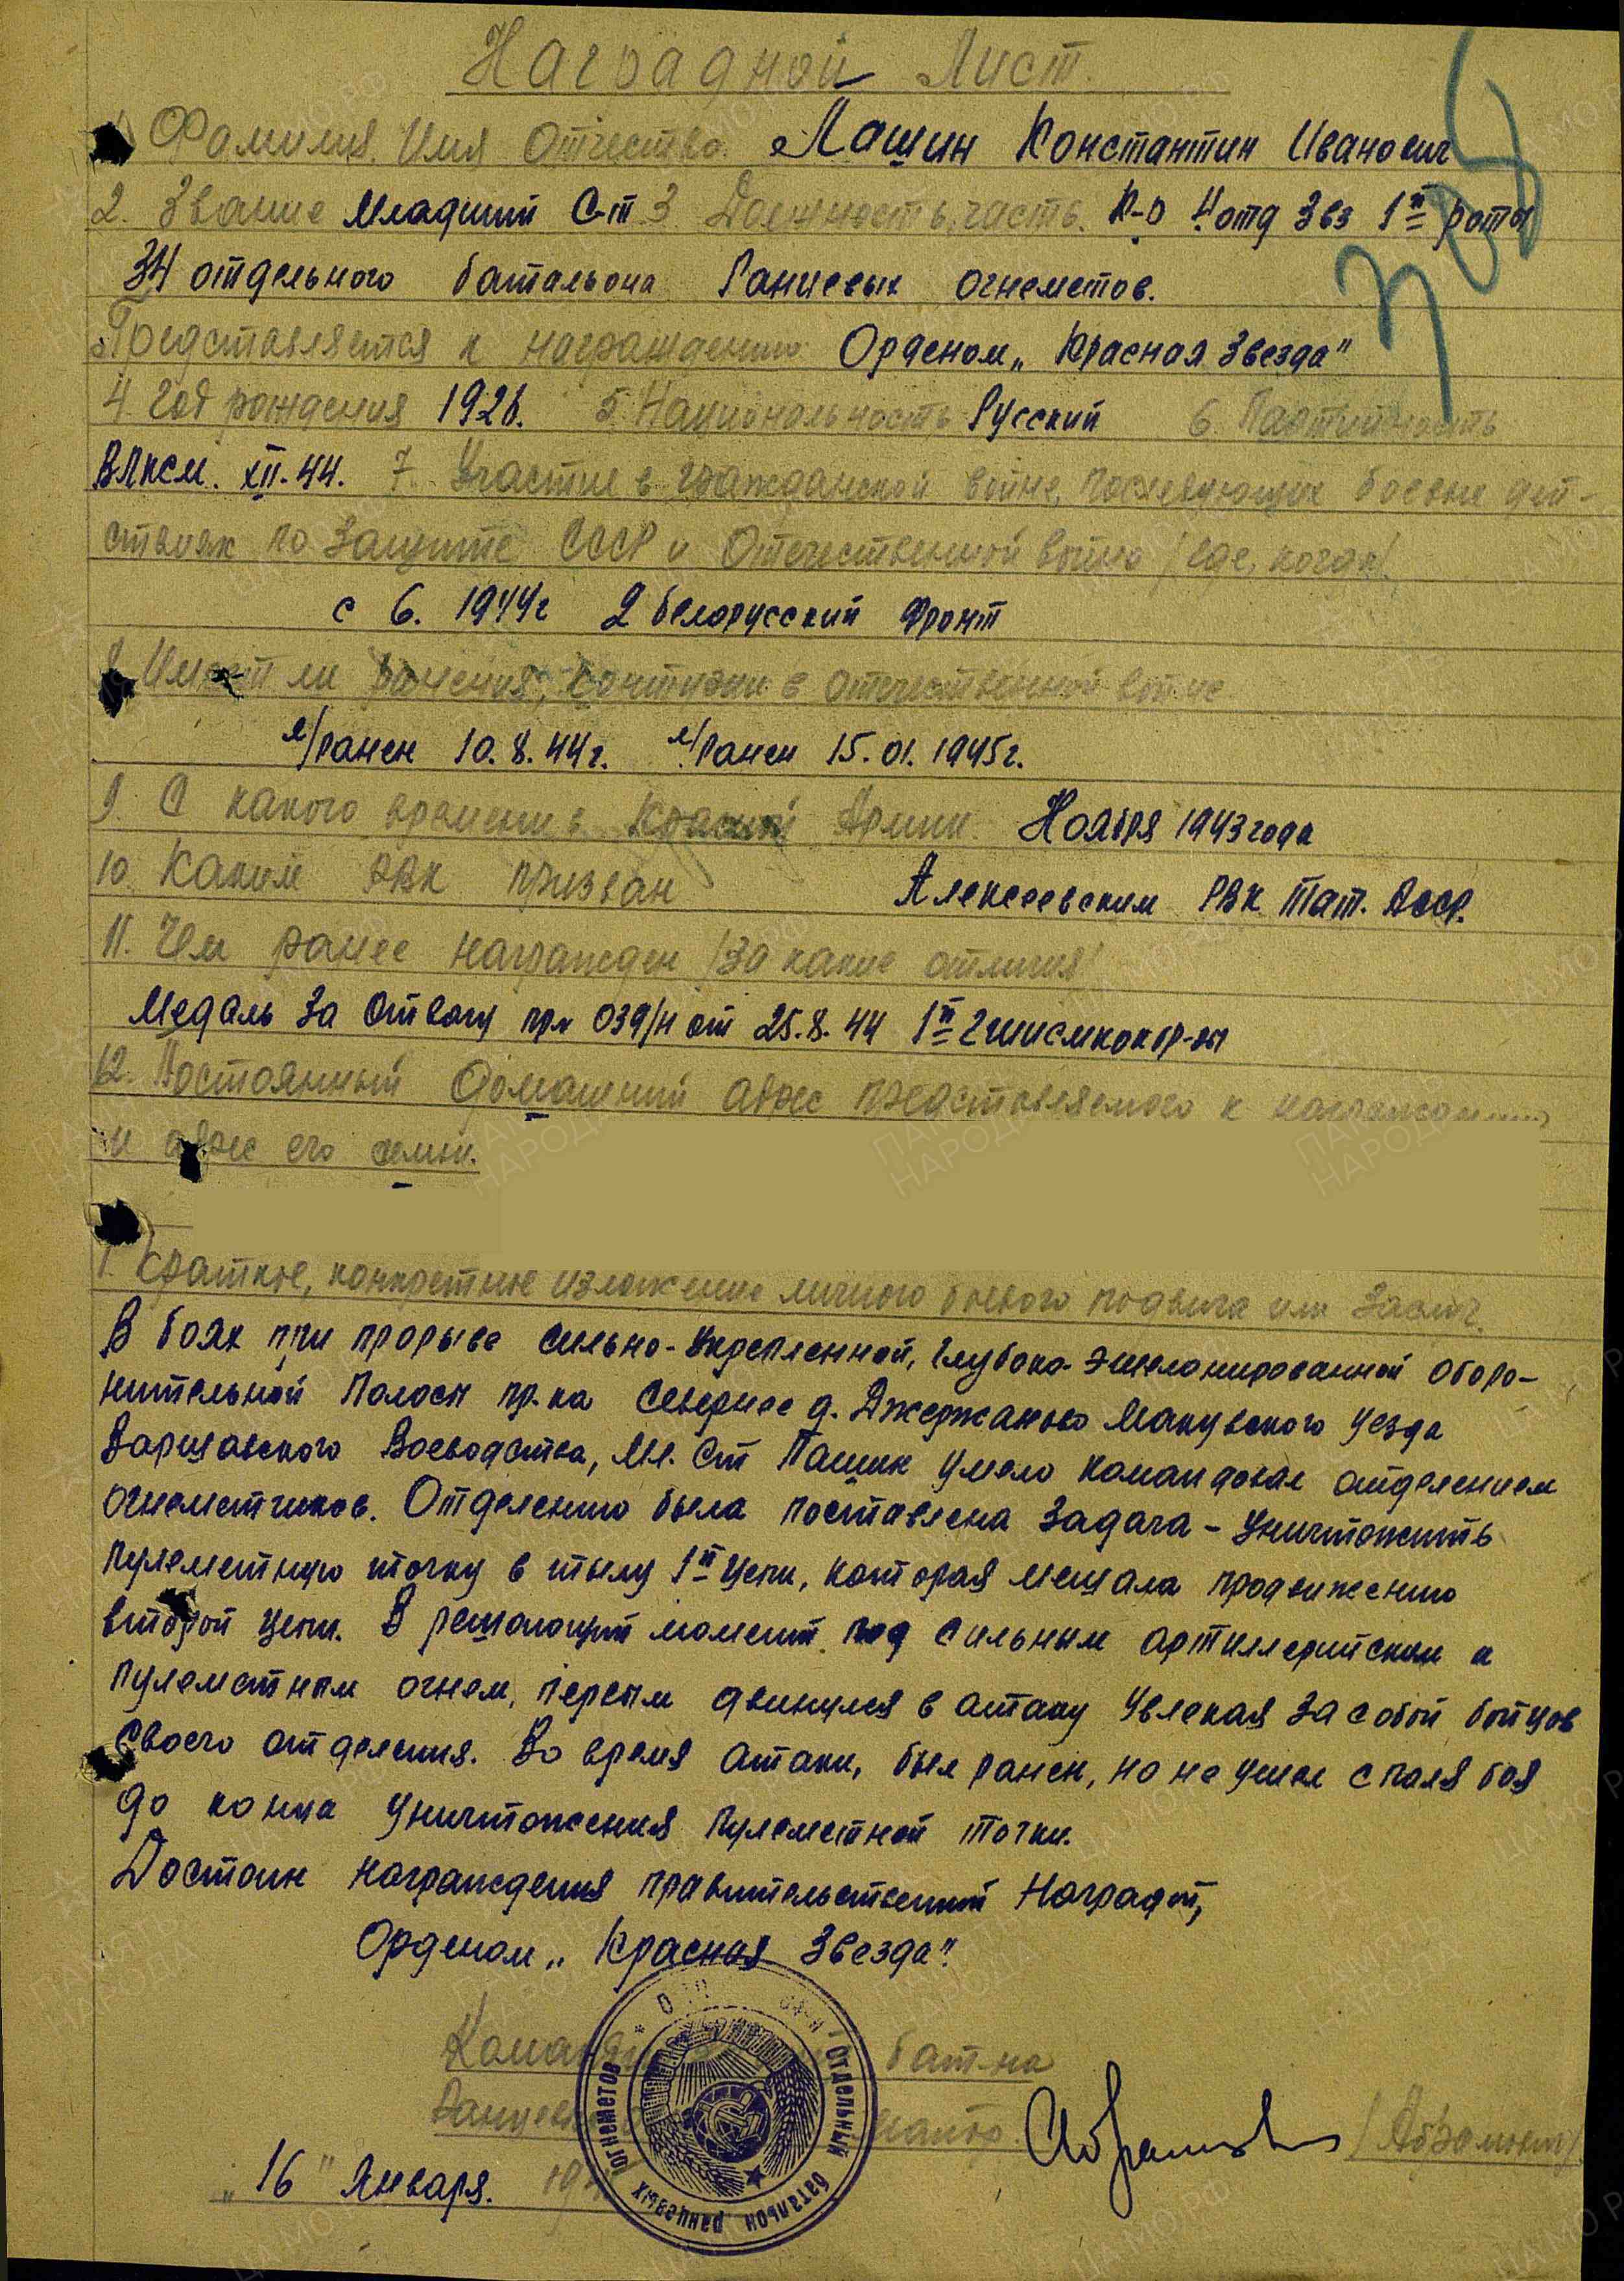 Наградной Лист.
Фамилия Имя Отчество Лашин Константин Иванович
2. Звание Младший С-т 3 Должность, часть. К-р 4 отд 3 вз 1й роты
34 отдельного батальона Ранцевых огнеметов.
Представляется к награждению Орденом „Красная Звезда"
4 Год рождения 1926. 5 Национальность Русский 6. Партийность
ВЛКСМ. XII-44. 7. Участие в гражданской войне, последующих боевых дей-
ствиях по защите СССР и Отечественной войне /где, когда/
с 6. 1944г 2 Белорусский Фронт
8 Имеет ли ранения, контузии в отечественной войне
л/ранен 10.8.44г. л/ранен 15.01.1945г.
9. С какого времени в Красной Армии Ноября 1943 года
10 Каким РВК призван Алексеевским РВК Тат. АССР.
11. Чем ранее награжден /за какие отличия/
Медаль За Отвагу пр. 039/н от 25.8.44 1й
12. Постоянный домашний адрес представляемого к награждению
и адрес его семьи.
1. Краткое, конкретное изложение личного боевого подвига или заслуг.
В боях при прорыве сильно-укрепленной, глубоко-эшелонированной оборо-
нительной полосы пр-ка севернее д. Джержаново Макувского уезда
Варшавского Воеводства, Мл. С-т Лашин умело командовал отделением
огнеметчиков. Отделению была поставлена задача - уничтожить
пулеметную точку в тылу 1й цепи, которая мешала продвижению
второй цепи. В решающий момент под сильным артиллерийским и
пулеметным огнем, первым двинулся в атаку увлекая за собой бойцов
своего отделения. Во время атаки, был ранен, но не ушел с поля боя
до конца уничтожения пулеметной точки.
Достоин награждения правительственной Наградой,
Орденом „Красная Звезда".
Командир бат-на
Ранцевых майор /Абрамович/
"16" Января. 194
Отдельный батальон ранцевых огнеметов